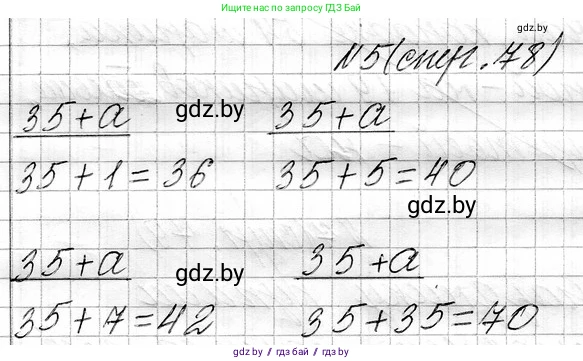 Ищите нас по запросу ГДЗ Бай
gdz.by
N5 (стр. 78)
35+a gdz.by 35+a
35+1=36 35+5=40
gdz.by
35+a gdz.by 35+a
35+7=42 35+35=70
gdz.by / гдз бай / gdz.by / гдз бай / gdz.by